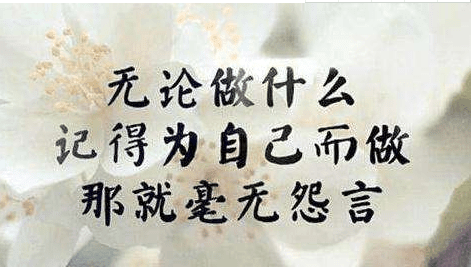 无论做什么
记得为自己而做
那就毫无怨言